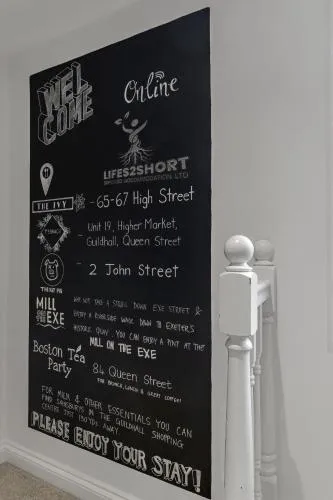 WELCOME
Online
LIFES2SHORT
SERVICED ACCOMMODATION LTD
THE IVY - 65-67 High Street
TYEPYEDONG - Unit 19, Higher Market,
Guildhall, Queen Street
THE FAT PIG - 2 John Street
MILL ON THE EXE
WHY NOT TAKE A STROLL DOWN EXE STREET &
ENJOY A RIVERSIDE WALK DOWN TO EXETER'S
HISTORIC QUAY. YOU CAN ENJOY A PINT AT THE
MILL ON THE EXE
Boston Tea
Party - 84 Queen Street
FOR BRUNCH, LUNCH & GREAT COFFEE!
FOR MILK & OTHER ESSENTIALS YOU CAN
FIND SAINSBURYS IN THE GUILDHALL SHOPPING
CENTRE JUST 150YDS AWAY.
PLEASE ENJOY YOUR STAY!